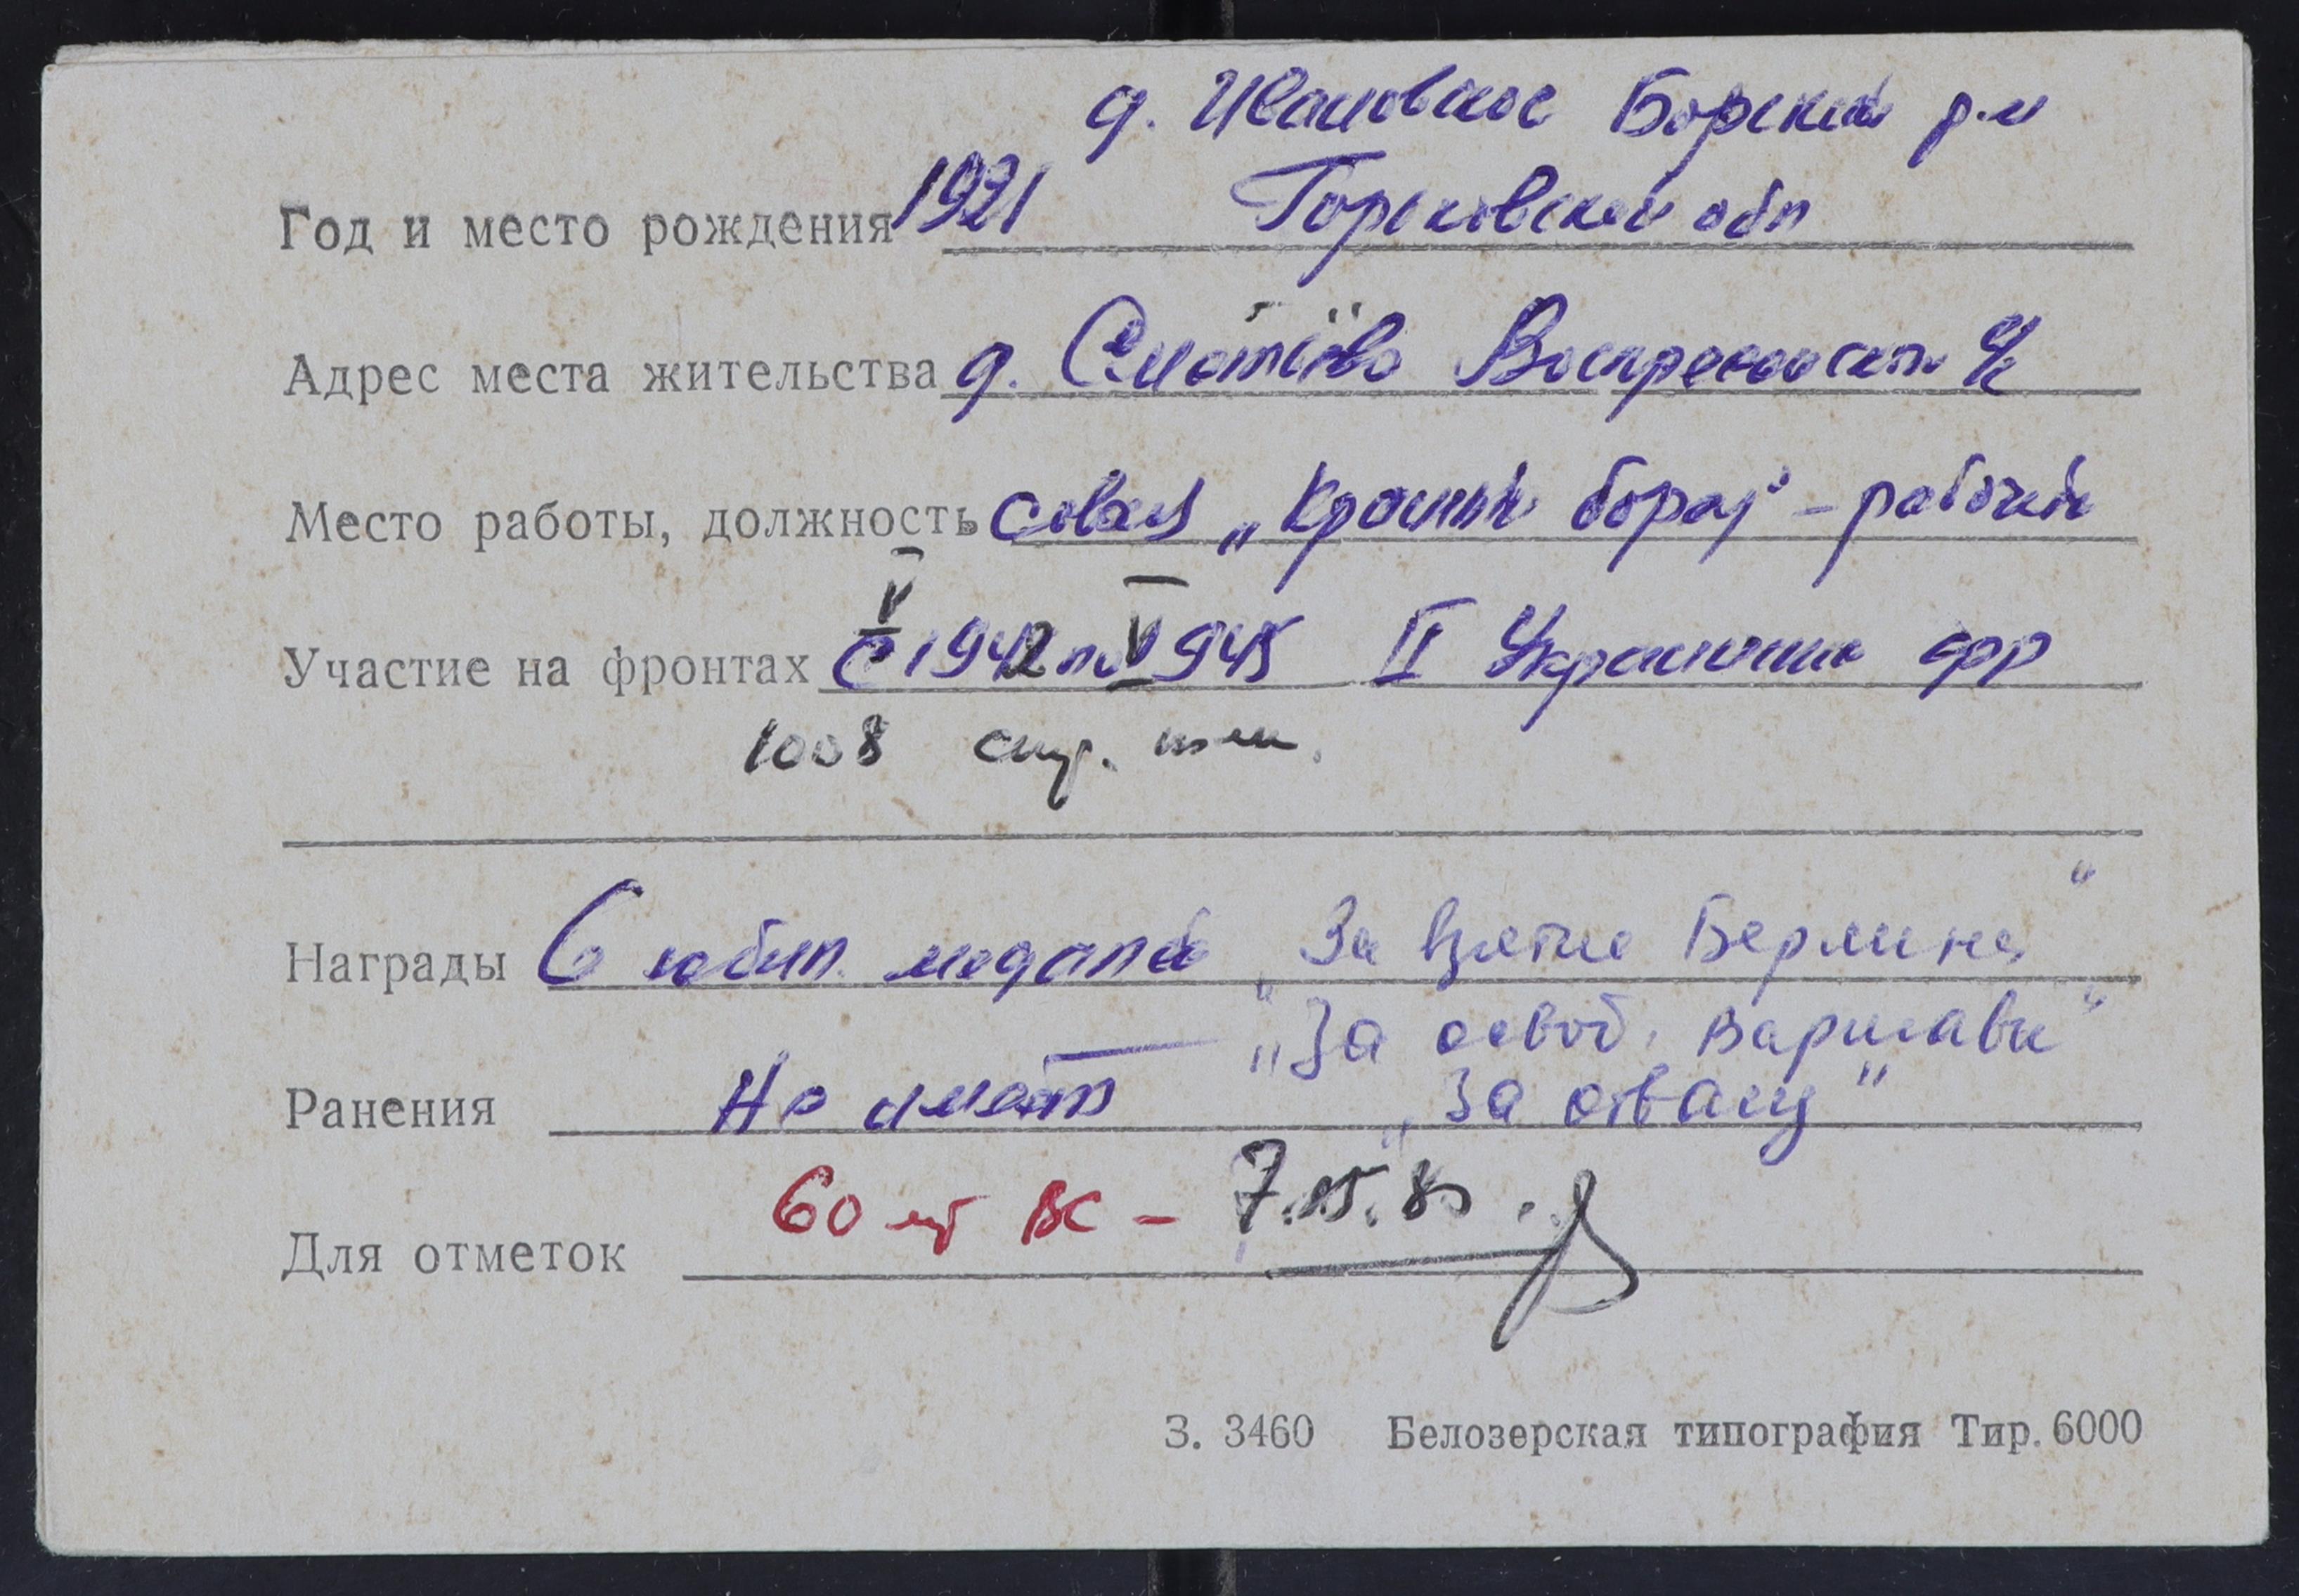 д. Ивановское Борский р-н
Год и место рождения 1921 Горьковской обл
Адрес места жительства д. Воскресенск
Место работы, должность совхоз „Красный борец" - рабочий
V V
Участие на фронтах с 1942 по 1945 II Украинский фр
1008
Награды 6 юбил. медалей „За взятие Берлина"
„За освоб. Варшавы"
Ранения Не имеет „За отвагу"
Для отметок 60 лет ВС - 7.05.85.
З. 3460 Белозерская типография Тир. 6000